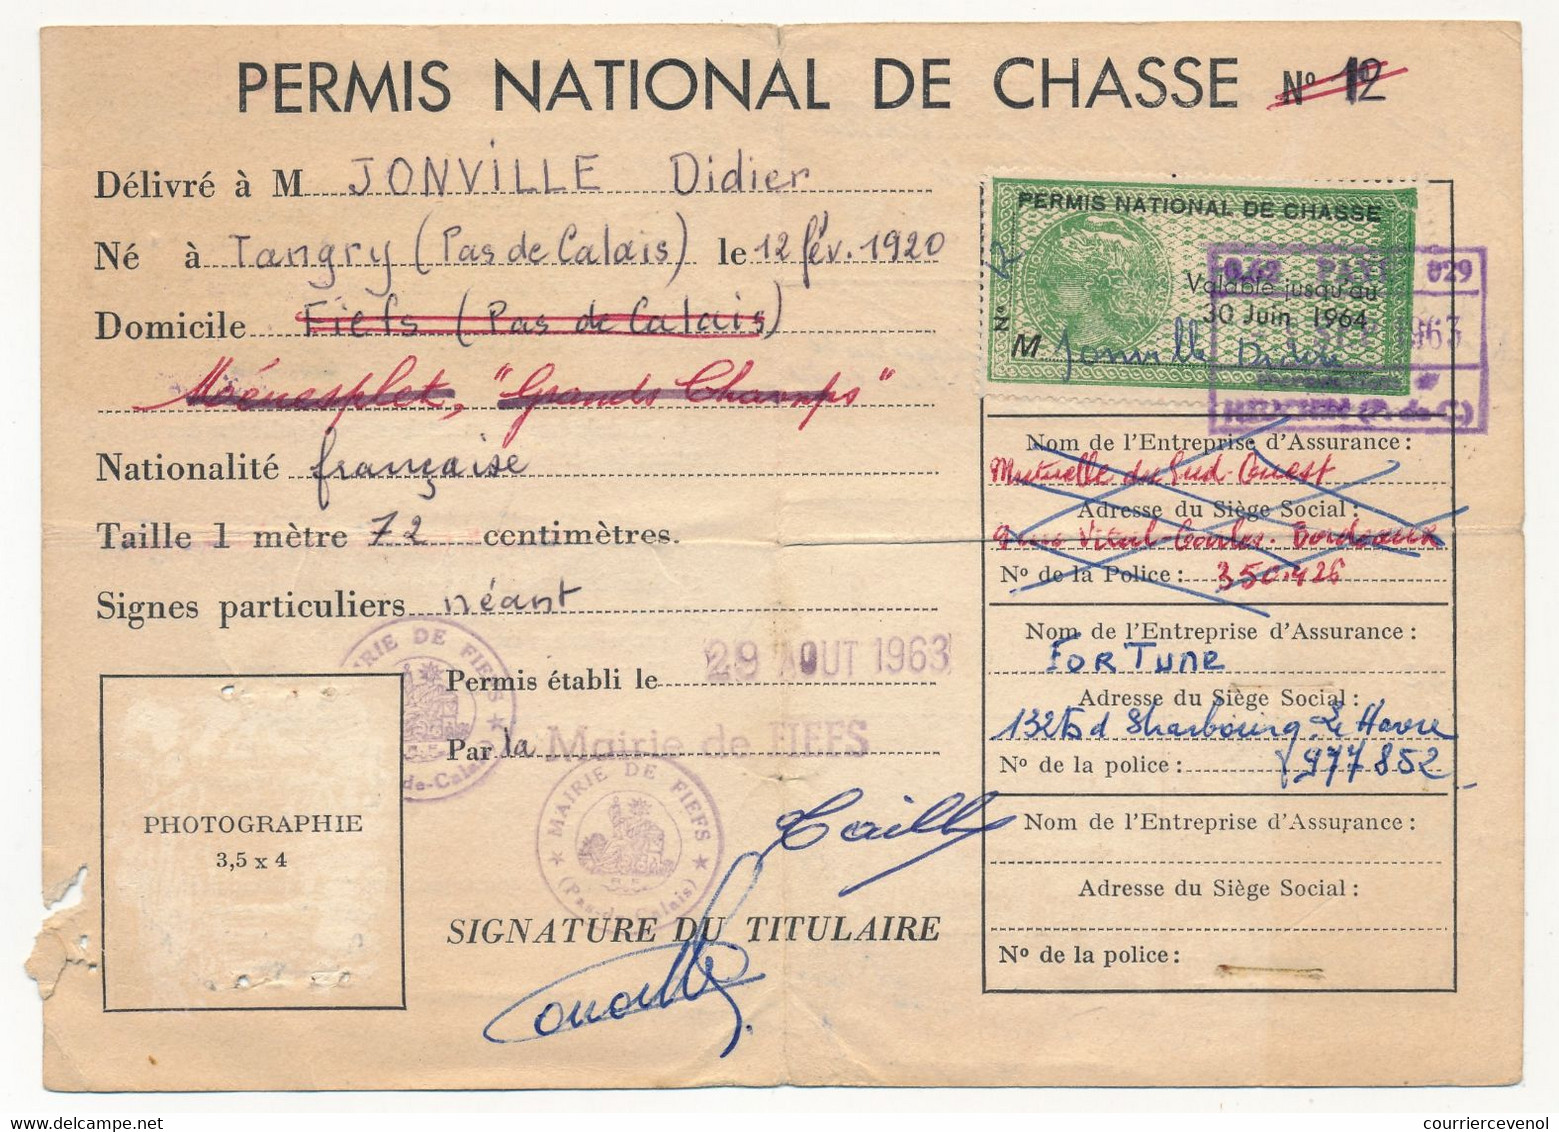 PERMIS NATIONAL DE CHASSE Nº 12
Délivré à M JONVILLE Didier
Né à Tangry (Pas de Calais) le 12 fév. 1920
Domicile Fiefs (Pas de Calais)
Ménesplet, "Grands Champs"
Nationalité française
Taille 1 mètre 72 centimètres.
Signes particuliers néant
Permis établi le 29 AOUT 1963
Par la Mairie de FIEFS
MAIRIE DE FIEFS
(Pas-de-Calais)
MAIRIE DE FIEFS
(Pas-de-Calais)
PHOTOGRAPHIE
3,5 x 4
SIGNATURE DU TITULAIRE
PERMIS NATIONAL DE CHASSE
Valable jusqu'au
30 Juin 1964
Nº
M Jonville Didier
029
1963
HEUCHIN (P.-de-C.)
Nom de l'Entreprise d'Assurance :
Mutuelle du Sud-Ouest
Adresse du Siège Social :
Bordeaux
Nº de la Police : 350.426
Nom de l'Entreprise d'Assurance :
ForTune
Adresse du Siège Social :
132 Bd Le Havre
Nº de la police : 977852
Nom de l'Entreprise d'Assurance :
Adresse du Siège Social :
Nº de la police :
courriercevenol